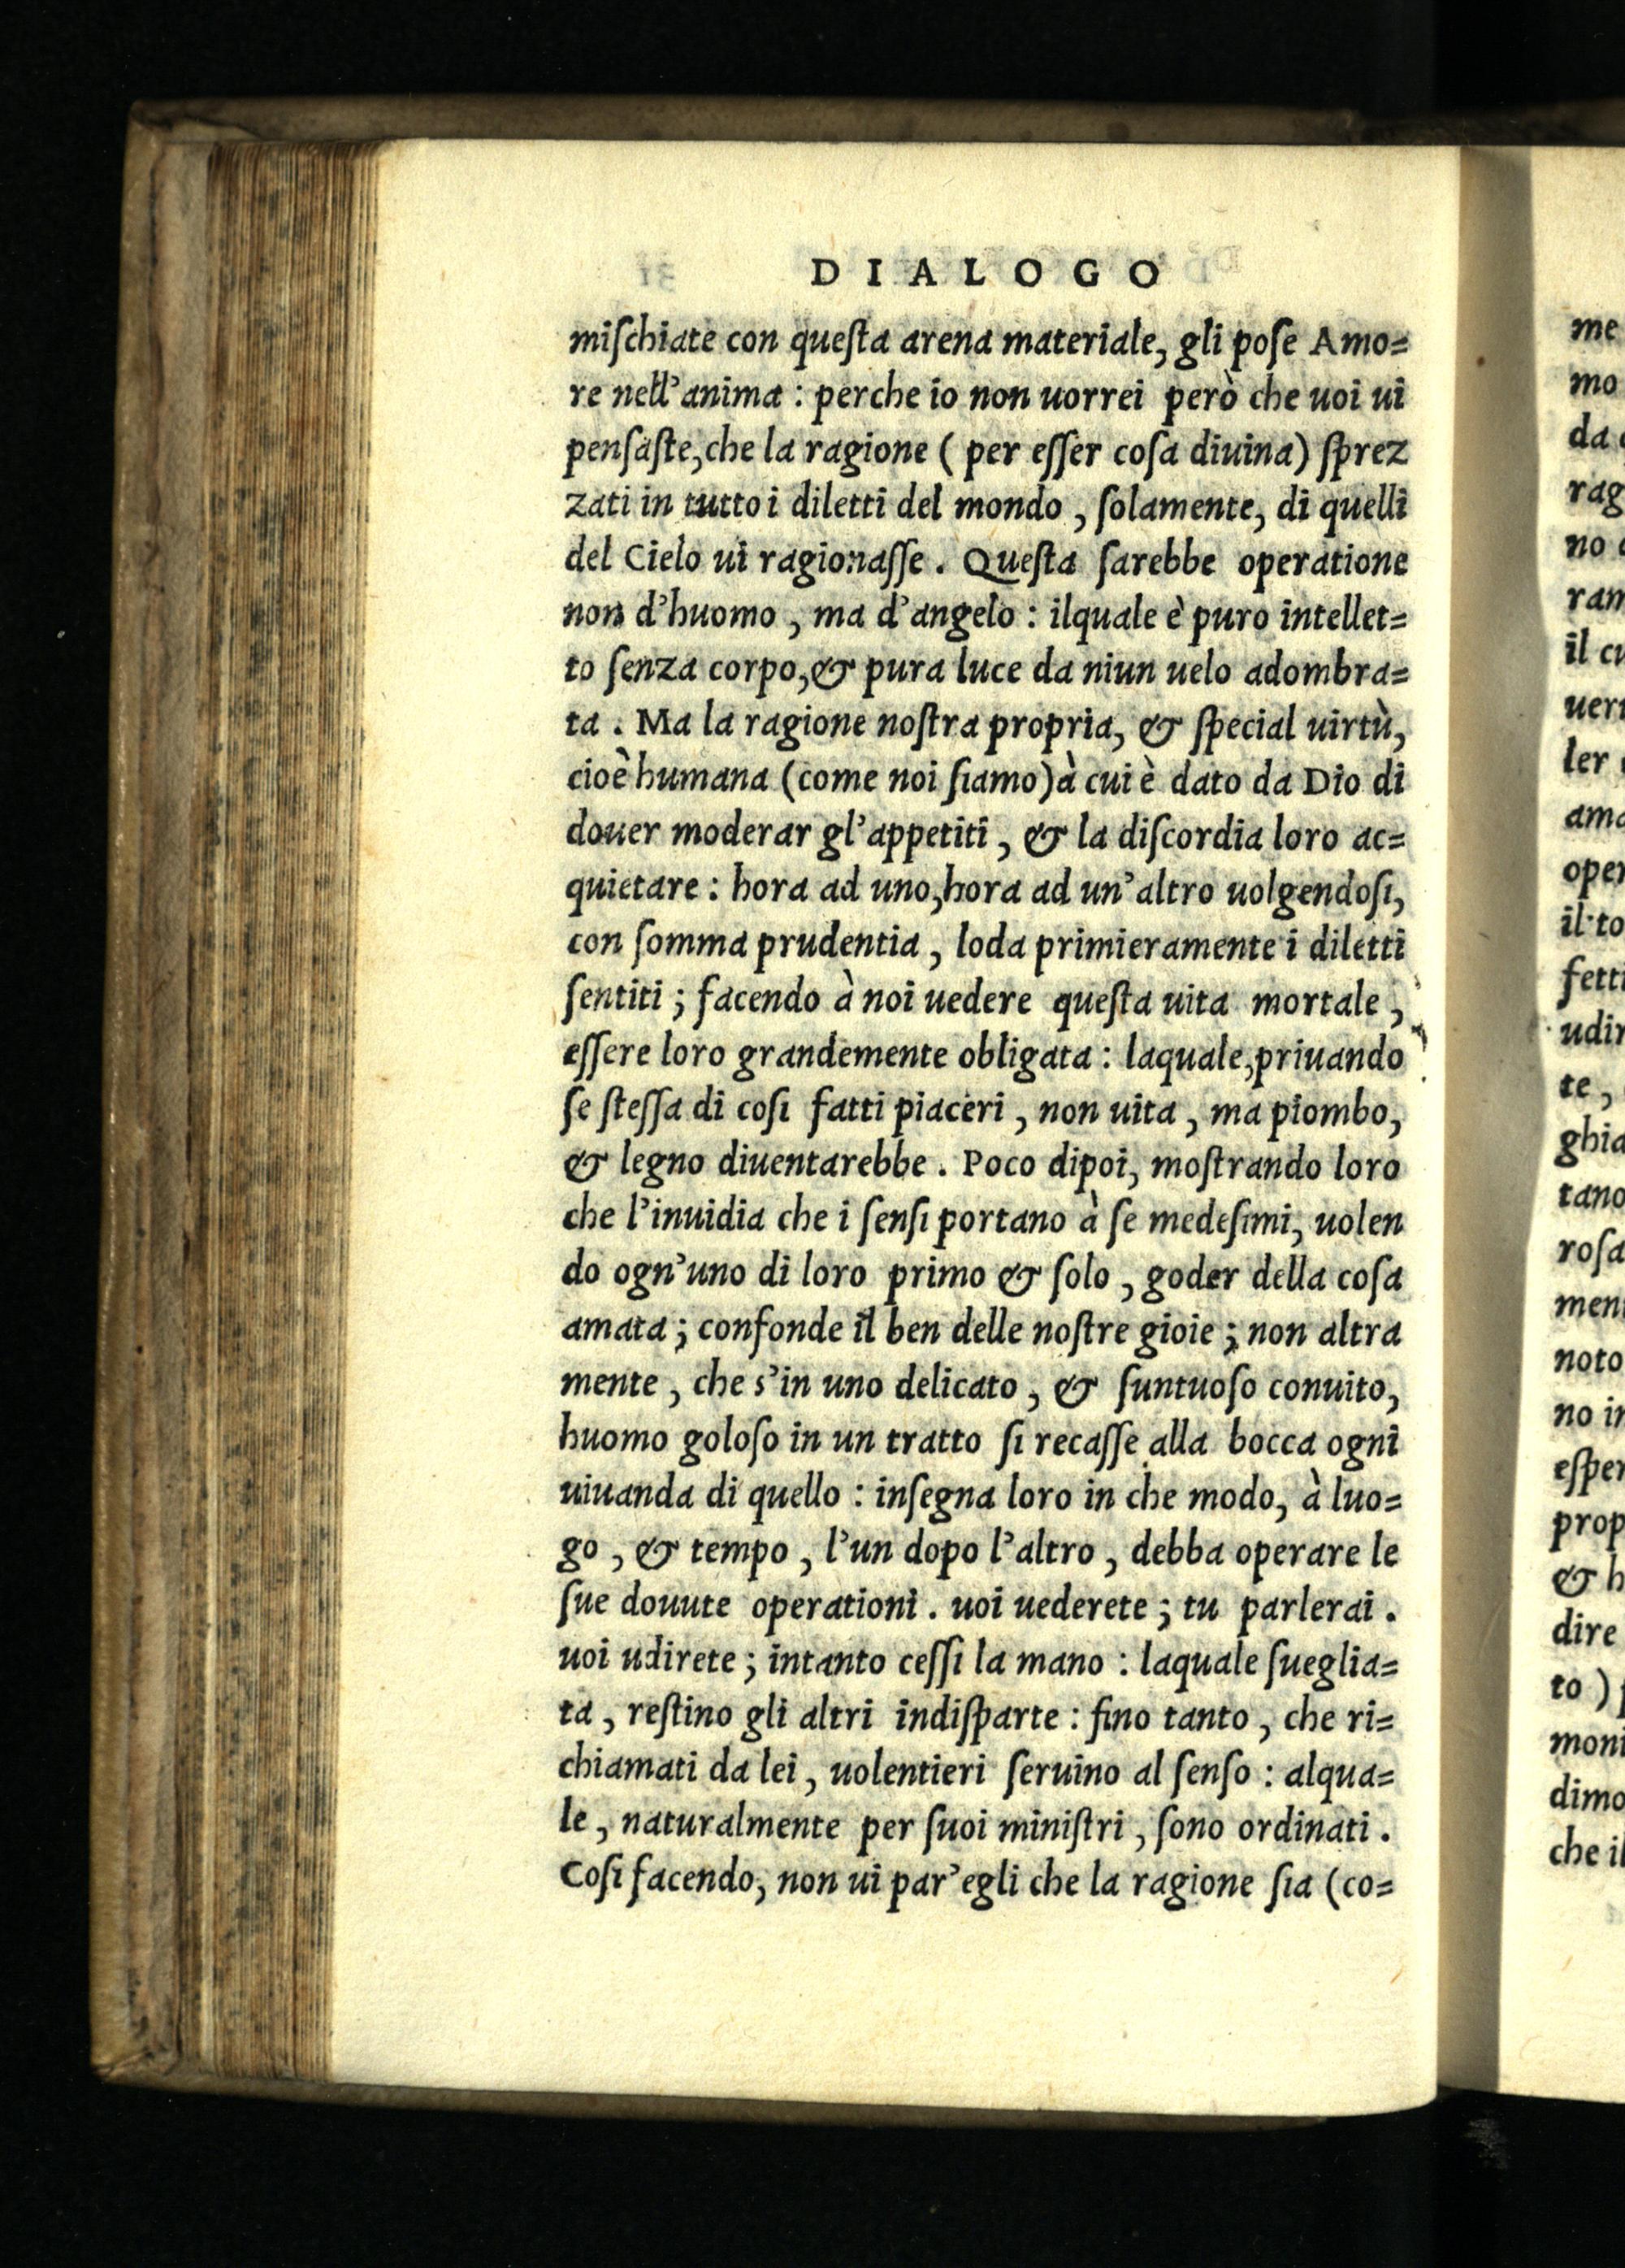 DIALOGO
miſchiate con queſta arena materiale, gli poſe Amo=
re nell'anima : perche io non uorrei però che uoi ui
penſaſte, che la ragione ( per eſſer coſa diuina) ſprez
zati in tutto i diletti del mondo , ſolamente, di quelli
del Cielo ui ragionaſſe . Queſta ſarebbe operatione
non d'huomo , ma d'angelo : ilquale è puro intellet=
to ſenza corpo, & pura luce da niun uelo adombra=
ta . Ma la ragione noſtra propria, & ſpecial uirtù,
cioè humana (come noi ſiamo) à cui è dato da Dio di
douer moderar gl'appetiti , & la diſcordia loro ac=
quietare : hora ad uno, hora ad un'altro uolgendoſi,
con ſomma prudentia , loda primieramente i diletti
ſentiti ; facendo à noi uedere queſta uita mortale ,
eſſere loro grandemente obligata : laquale, priuando
ſe ſteſſa di coſi fatti piaceri , non uita , ma piombo,
& legno diuentarebbe . Poco dipoi, moſtrando loro
che l'inuidia che i ſenſi portano à ſe medeſimi, uolen
do ogn'uno di loro primo & ſolo , goder della coſa
amata ; confonde il ben delle noſtre gioie ; non altra
mente , che s'in uno delicato , & ſuntuoſo conuito,
huomo goloſo in un tratto ſi recaſſe alla bocca ogni
uiuanda di quello : inſegna loro in che modo, à luo=
go , & tempo , l'un dopo l'altro , debba operare le
ſue douute operationi . uoi uederete ; tu parlerai .
uoi udirete ; intanto ceſſi la mano : laquale ſueglia=
ta , reſtino gli altri indiſparte : fino tanto , che ri=
chiamati da lei , uolentieri ſeruino al ſenſo : alqua=
le , naturalmente per ſuoi miniſtri , ſono ordinati .
Coſi facendo, non ui par'egli che la ragione ſia (co=
me
mo
da
rag
no
ram
il cu
uer
ler
ama
oper
il to
fetti
udir
te ,
ghia
tano
roſa
men
noto
no in
eſper
prop
& h
dire
to )
moni
dimo
che il